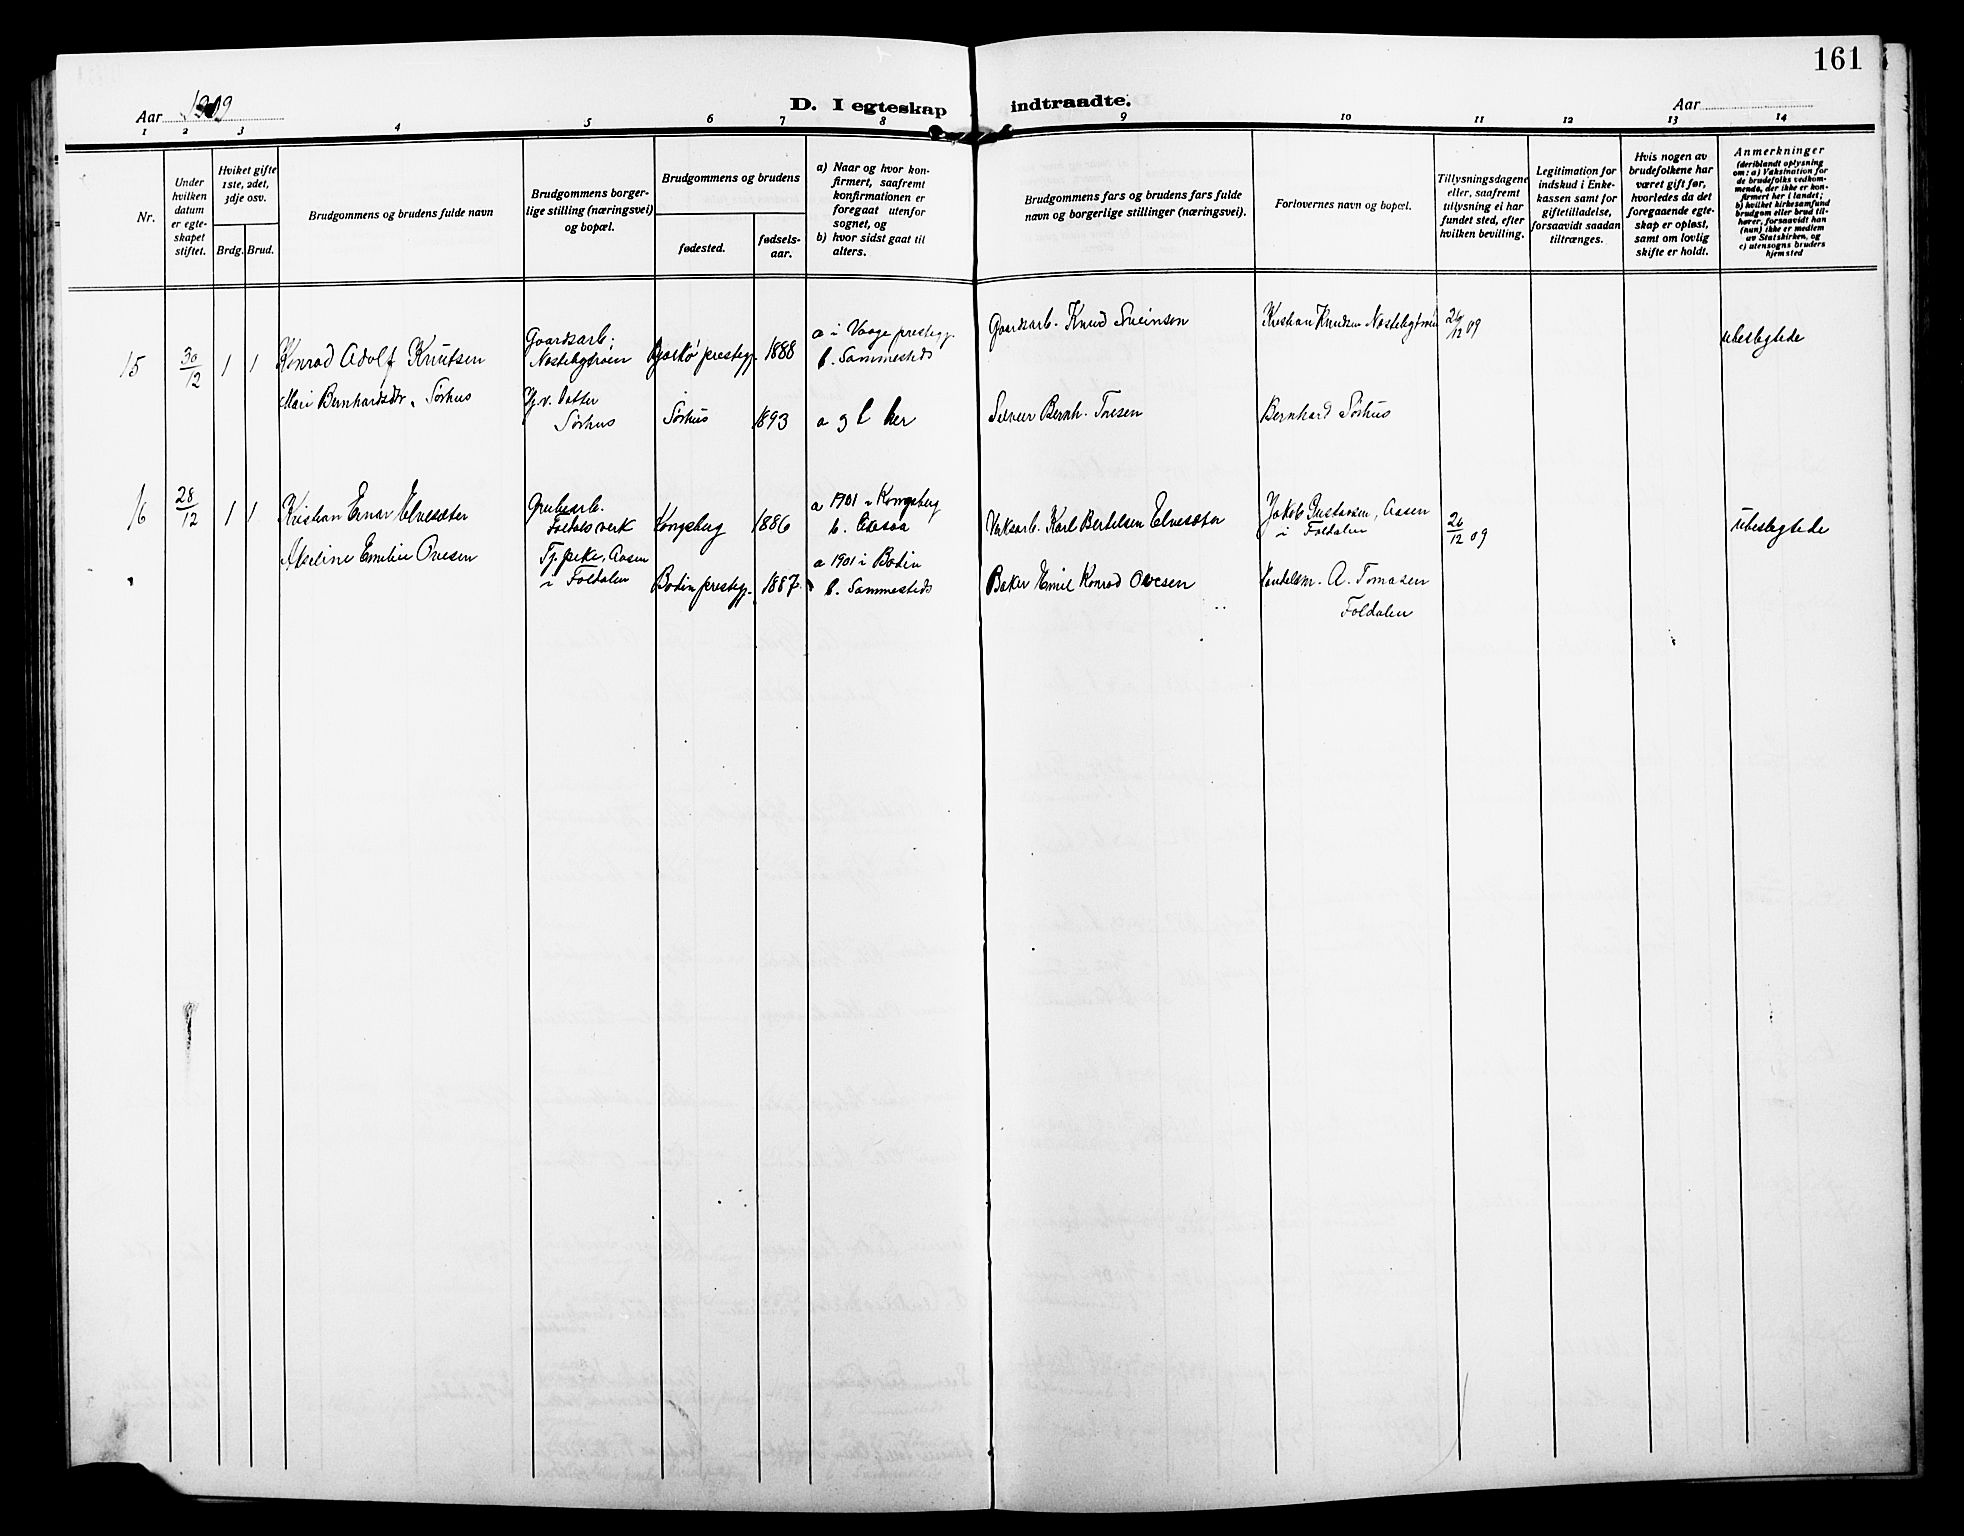 161
Aar 1909
D. I egteskap indtraadte.
Aar
1 2 3 4 5 6 7 8 9 10 11 12 13 14
Nr.
Under
hvilken
datum
er egte-
skapet
stiftet.
Hviket gifte
1ste, 2det,
3dje osv.
Brdg. Brud.
Brudgommens og brudens fulde navn
Brudgommens borger-
lige stilling (næringsvei)
og bopæl.
Brudgommens og brudens
fødested.
fødsels-
aar.
a) Naar og hvor kon-
firmert, saafremt
konfirmationen er
foregaat utenfor
sognet, og
b) hvor sidst gaat til
alters.
Brudgommens fars og brudens fars fulde
navn og borgerlige stillinger (næringsvei).
Forlovernes navn og bopæl.
Tillysningsdagene
eller, saafremt
tillysning ei har
fundet sted, efter
hvilken bevilling.
Legitimation for
indskud i Enke-
kassen samt for
giftetilladelse,
forsaavidt saadan
tiltrænges.
Hvis nogen av
brudefolkene har
været gift før,
hvorledes da det
foregaaende egte-
skap er opløst,
samt om lovlig
skifte er holdt.
Anmerkninger
(deriblandt oplysning
om: a) Vaksination for
de brudefolks vedkom-
mende, der ikke er kon-
firmert her i landet;
b) hvilket kirkesamfund
brudgom eller brud til-
hører, forsaavidt han
(hun) ikke er medlem
av Statskirken, og
c) utensogns bruders
hjemsted
15 30/12 1 1 Konrad Adolf Knutsen
Gaardsarb;
prestegj. 1888
a i Vaage prestegj.
b. Sammesteds
Gaardsarb. Knud Sveinson
Kristian Knudsen
26/12 09
ubeslegtede
Mari Bernhardsdtr. Sörhus
Gj. v. Datter
Sörhus
Sörhus 1893
a og b her
Bernh. Toresen
Bernhard Sörhus
16 28/12 1 1 Kristian Einar Elvesæter
Grubearb.
Foldals verk
Kongsberg 1886
a 1901 i Kongsberg
Verksarb. Karl Bertelsen Elvesæter
Jakob Gustavsen, Aasen
i Foldalen
26/12 09
ubeslegtede
Emilie Ovesen
Tj. pike, Aasen
i Foldalen
Bodin prestegj. 1887
a 1901 i Bodin
b. Sammesteds
Baker Emil Konrad Ovesen
Handelsm. A. Tomasen
Foldalen